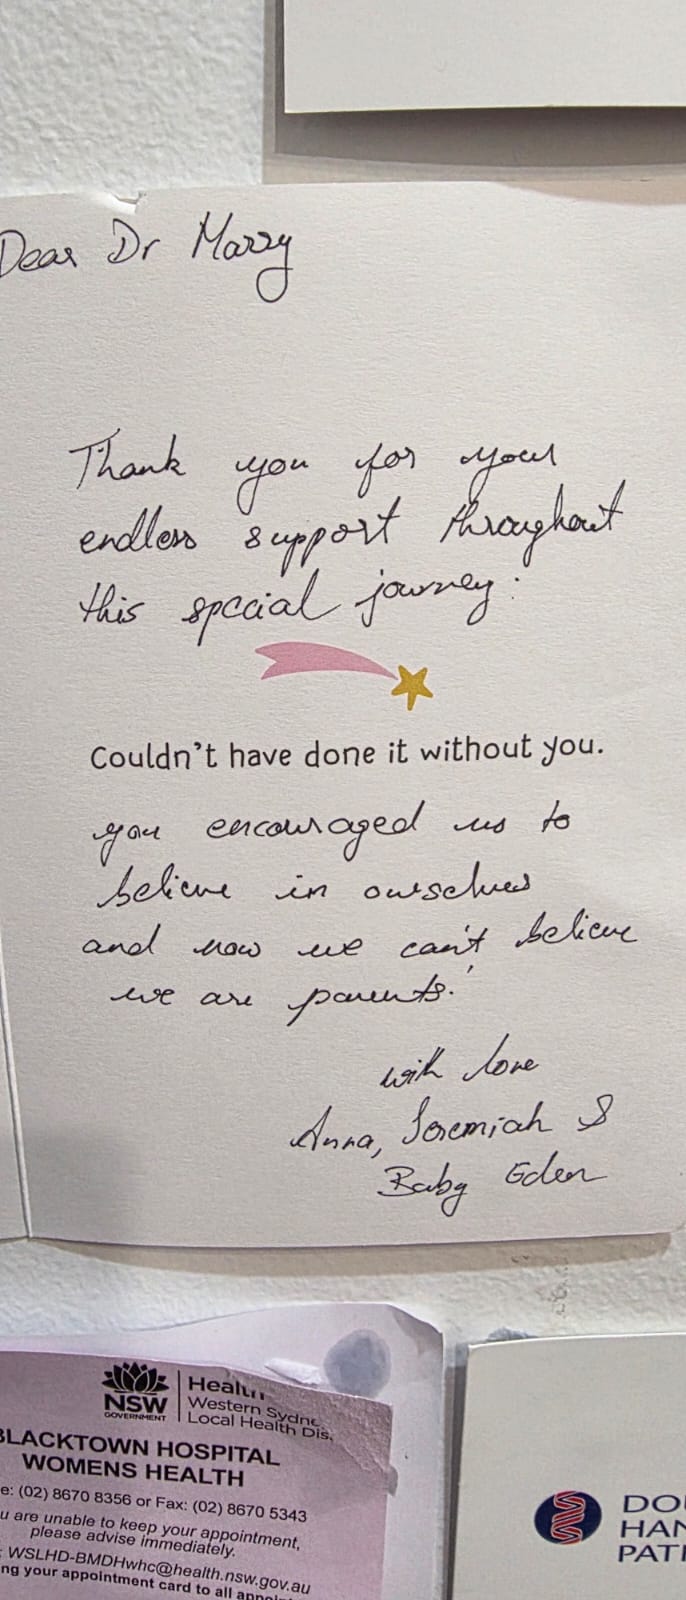 Dear Dr Marzy
Thank you for your
endless support throughout
this special journey.
Couldn't have done it without you.
you encouraged us to
believe in ourselves
and now we can't believe
we are parents!
with love
Anna, Jeremiah &
Baby Eden
NSW
GOVERNMENT
Health
Western Sydne
Local Health Dis.
BLACKTOWN HOSPITAL
WOMENS HEALTH
e: (02) 8670 8356 or Fax: (02) 8670 5343
u are unable to keep your appointment,
please advise immediately.
WSLHD-BMDHwhc@health.nsw.gov.au
ng your appointment card to all appoin
DOU
HAN
PATH